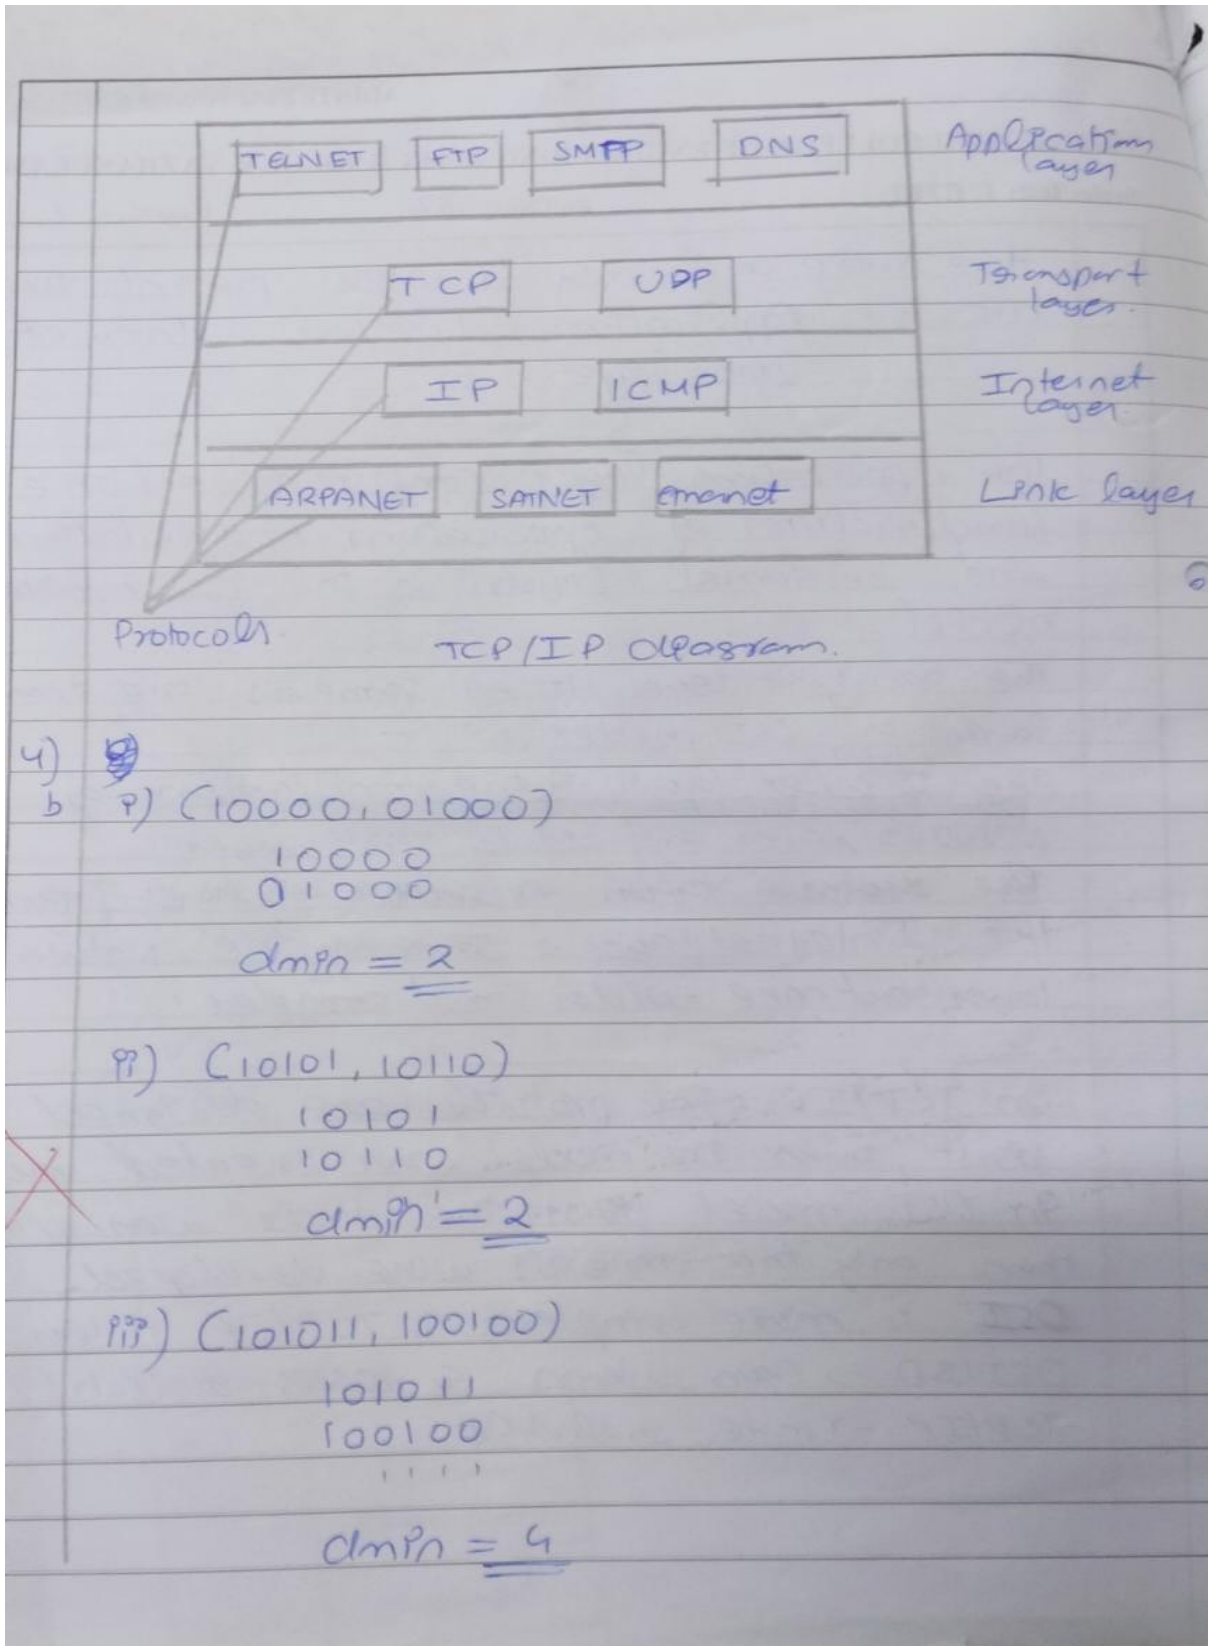 TELNET FTP SMTP DNS Application
layer
TCP UDP Transport
layer.
IP ICMP Internet
layer.
ARPANET SATNET Link layer
6
Protocols
TCP/IP diagram.
4)
b i) (10000, 01000)
10000
01000
dmin = 2
ii) (10101, 10110)
10101
10110
dmin = 2
iii) (101011, 100100)
101011
100100
1 1 1 1
dmin = 4